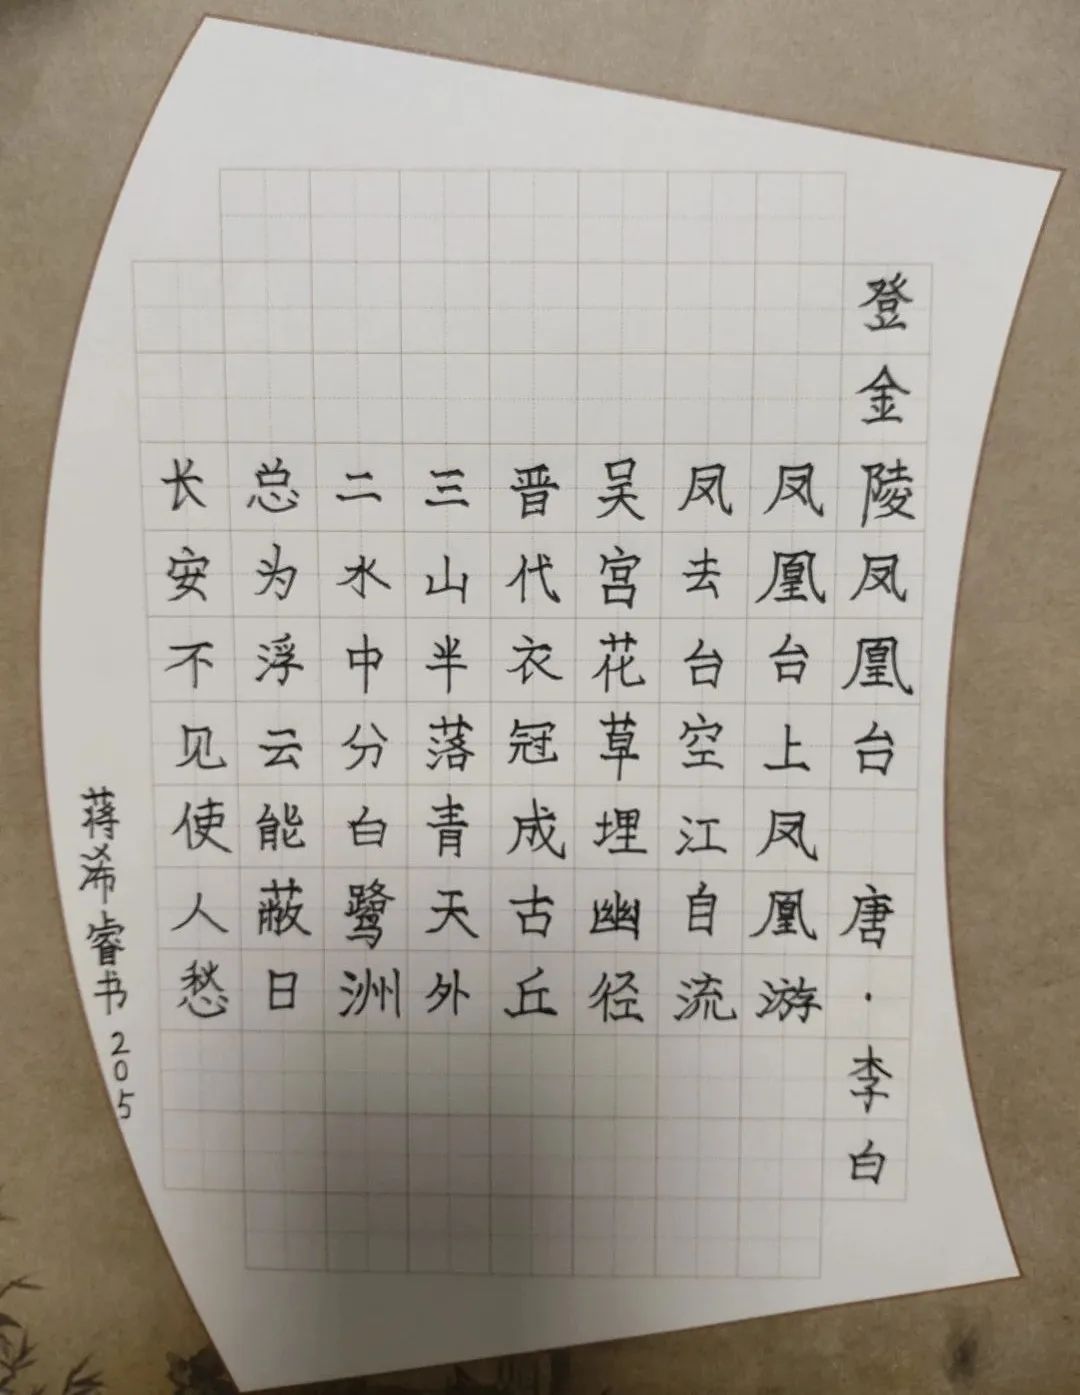 登金陵凤凰台 唐·李白
凤凰台上凤凰游
凤去台空江自流
吴宫花草埋幽径
晋代衣冠成古丘
三山半落青天外
二水中分白鹭洲
总为浮云能蔽日
长安不见使人愁
蒋浠睿书 205